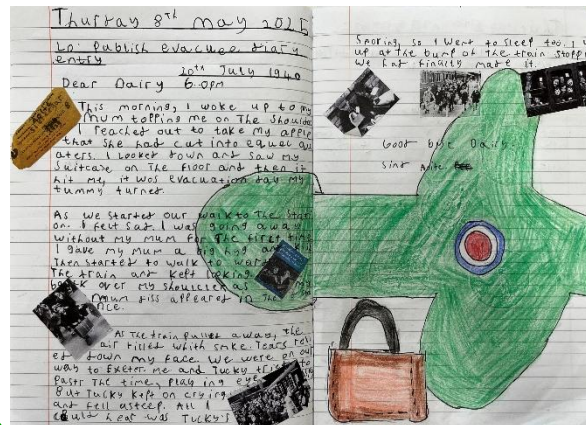 Thursday 8th may 2025
Lo: Publish evacuee diary
entry
20th July 1940
Dear Dairy 6.0pm
This morning, I woke up to my
Mum topping me on The Shoulder
I reached out to take my apple
that She had cut into equal
aters. I looked down and saw my
Suitcase on The floor and then it
hit me, it was evacuation day my
tummy turned.
As we started our walk to The
on. I felt Sad I was going away
without my mum for The first time
I gave my Mum a big hug and
Then started to walk to
The train and kept looking
back over my shoulder as my
Mum diss appeared in The
nce.
As The train pulled away, the
air filled whith smke. Tears roll
ed down my face. We were on our
way to Exeter. me and Tucky tried to
pass The time, Play ing eye
But Tucky kept on crying
and fell asleep. All I
could hear was Tucky's
Snoring, so I went to sleep too. I
up at the bump of the train
We had finally made it.
Good bye Dairy.